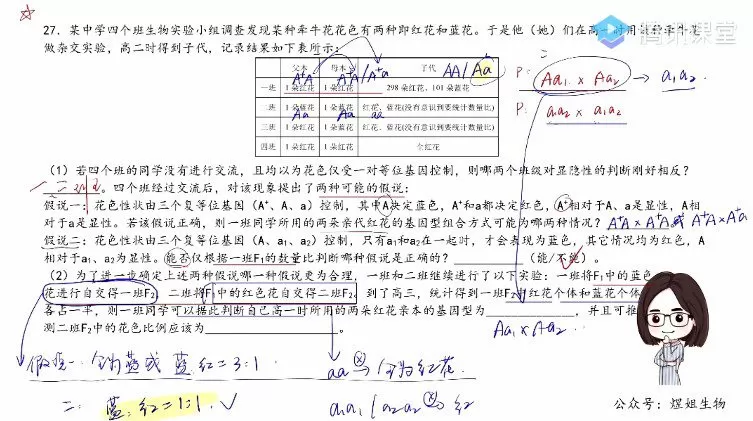 腾讯课堂
27. 某中学四个班生物实验小组调查发现某种牵牛花花色有两种即红花和蓝花。于是他（她）们在高一时用该种牵牛花
做杂交实验，高二时得到子代，记录结果如下表所示：
父本 母本 子代 AA/Aa
A⁺A A⁺A/A⁺a
一班 1朵红花 1朵红花 298朵红花、101朵蓝花
二班 1朵红花 1朵蓝花 红花、蓝花(没有意识到要统计数量比)
Aa Aa aa
三班 1朵蓝花 1朵蓝花 红花、蓝花(没有意识到要统计数量比)
四班 1朵红花 1朵红花 全红花
P: Aa₁ × Aa₂ → a₁a₂.
P: a₁a₂ × a₁a₂
（1）若四个班的同学没有进行交流，且均以为花色仅受一对等位基因控制，则哪两个班级对显隐性的判断刚好相反？
。四个班经过交流后，对该现象提出了两种可能的假说：
假说一：花色性状由三个复等位基因（A⁺、A、a）控制，其中A决定蓝色，A⁺和a都决定红色，A⁺相对于A、a是显性，A相
对于a是显性。若该假说正确，则一班同学所用的两朵亲代红花的基因型组合方式可能为哪两种情况？A⁺A × A⁺A 或 A⁺A × A⁺a
假说二：花色性状由三个复等位基因（A、a₁、a₂）控制，只有a₁和a₂在一起时，才会表现为蓝色，其它情况均为红色，A
相对于a₁、a₂为显性。能否仅根据一班F₁的数量比判断哪种假说是正确的？（能/不能）。
（2）为了进一步确定上述两种假说哪一种假说更为合理，一班和二班继续进行了以下实验：一班将F₁中的蓝色
花进行自交得一班F₂，二班将F₁中的红色花自交得二班F₂。到了高三，统计得到一班F₂中红花个体和蓝花个体
各占一半，则一班同学可以据此判断自己高一时所用的两朵红花亲本的基因型为 ，并且可推
Aa₁ × Aa₂
测二班F₂中的花色比例应该为 。
假说一 全为蓝或 蓝:红=3:1
aa ⊗→ 全为红花.
二: 蓝:红=1:1. ✓
a₁a₁/a₂a₂ ⊗→ 红
公众号：煜姐生物